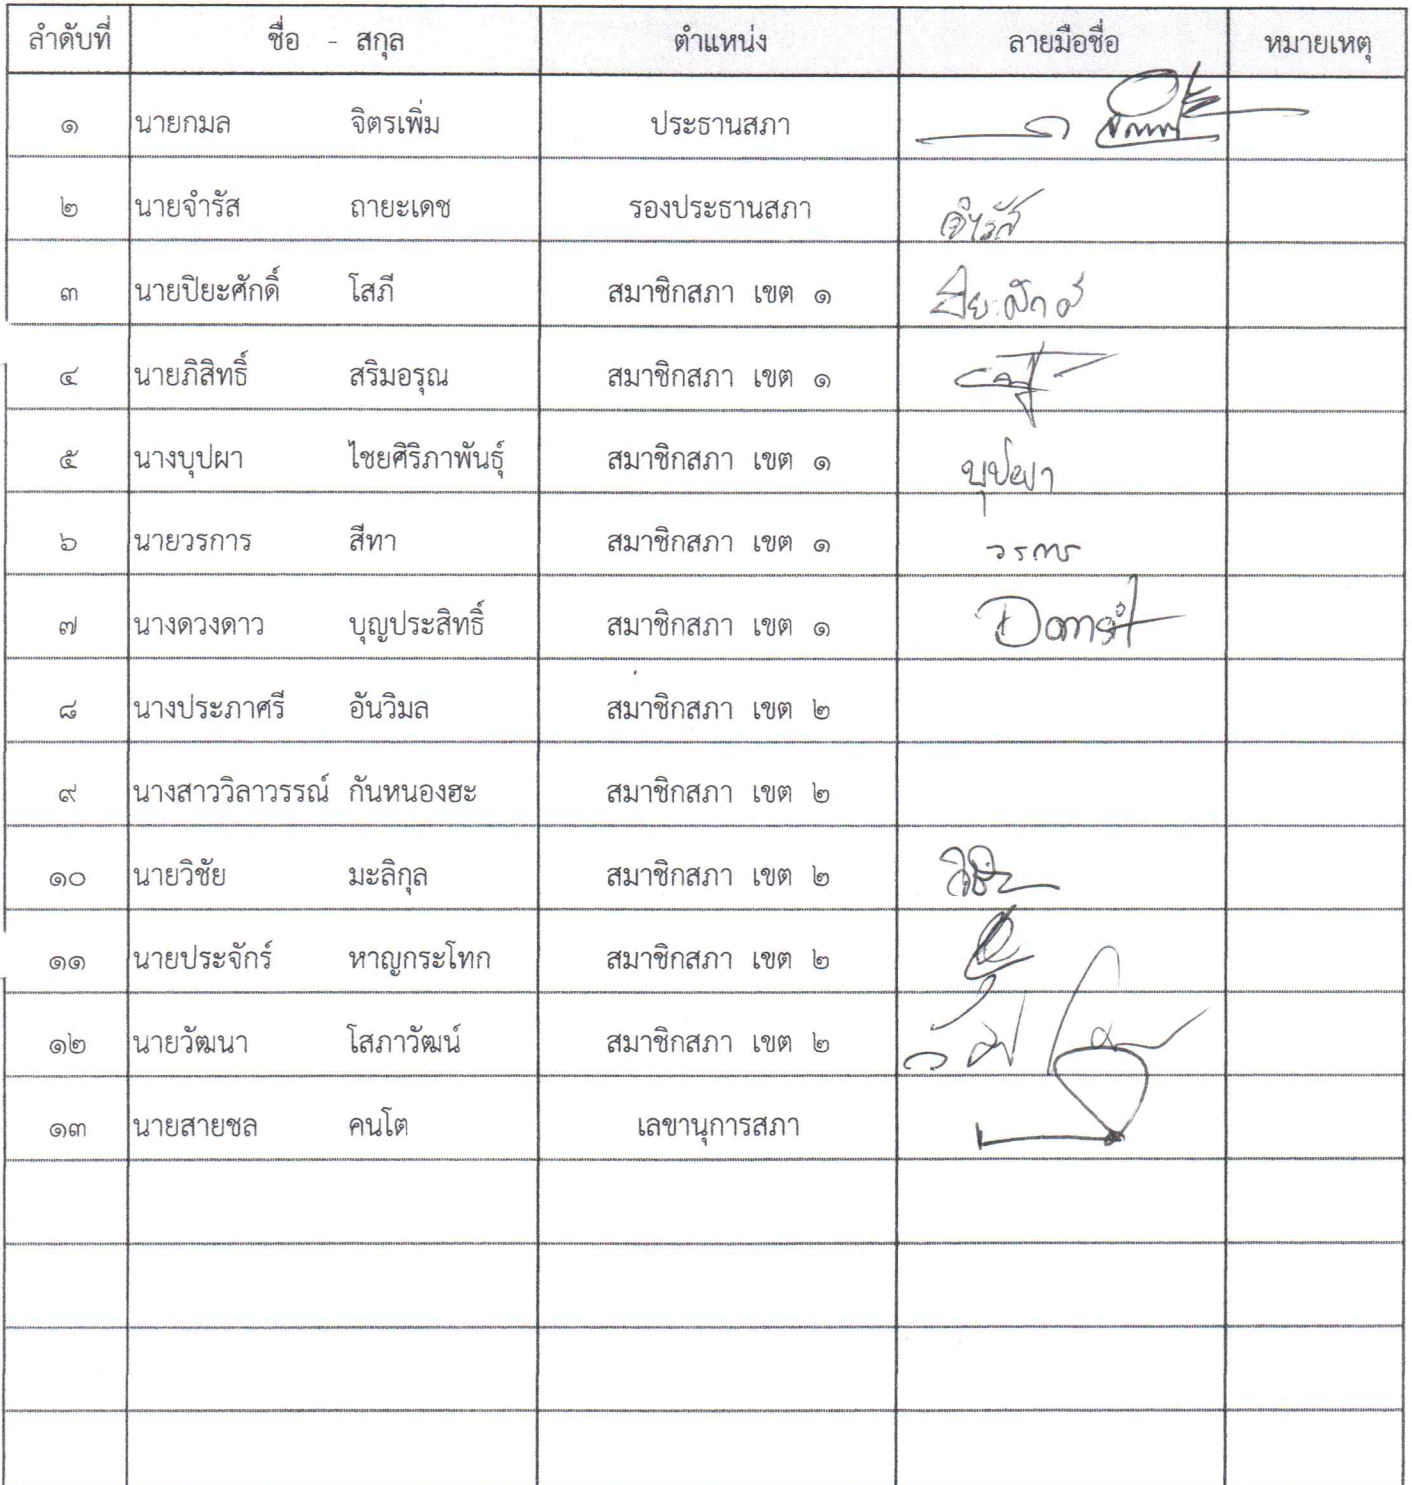 ลำดับที่ ชื่อ - สกุล ตำแหน่ง ลายมือชื่อ หมายเหตุ
๑ นายกมล จิตรเพิ่ม ประธานสภา
๒ นายจำรัส ถายะเดช รองประธานสภา จำรัส
๓ นายปิยะศักดิ์ โสภี สมาชิกสภา เขต ๑
๔ นายภิสิทธิ์ สริมอรุณ สมาชิกสภา เขต ๑
๕ นางบุปผา ไชยศิริภาพันธุ์ สมาชิกสภา เขต ๑ บุปผา
๖ นายวรการ สีทา สมาชิกสภา เขต ๑ วรการ
๗ นางดวงดาว บุญประสิทธิ์ สมาชิกสภา เขต ๑
๘ นางประภาศรี อันวิมล สมาชิกสภา เขต ๒
๙ นางสาววิลาวรรณ์ กันหนองฮะ สมาชิกสภา เขต ๒
๑๐ นายวิชัย มะลิกุล สมาชิกสภา เขต ๒
๑๑ นายประจักร์ หาญกระโทก สมาชิกสภา เขต ๒
๑๒ นายวัฒนา โสภาวัฒน์ สมาชิกสภา เขต ๒
๑๓ นายสายชล คนโต เลขานุการสภา